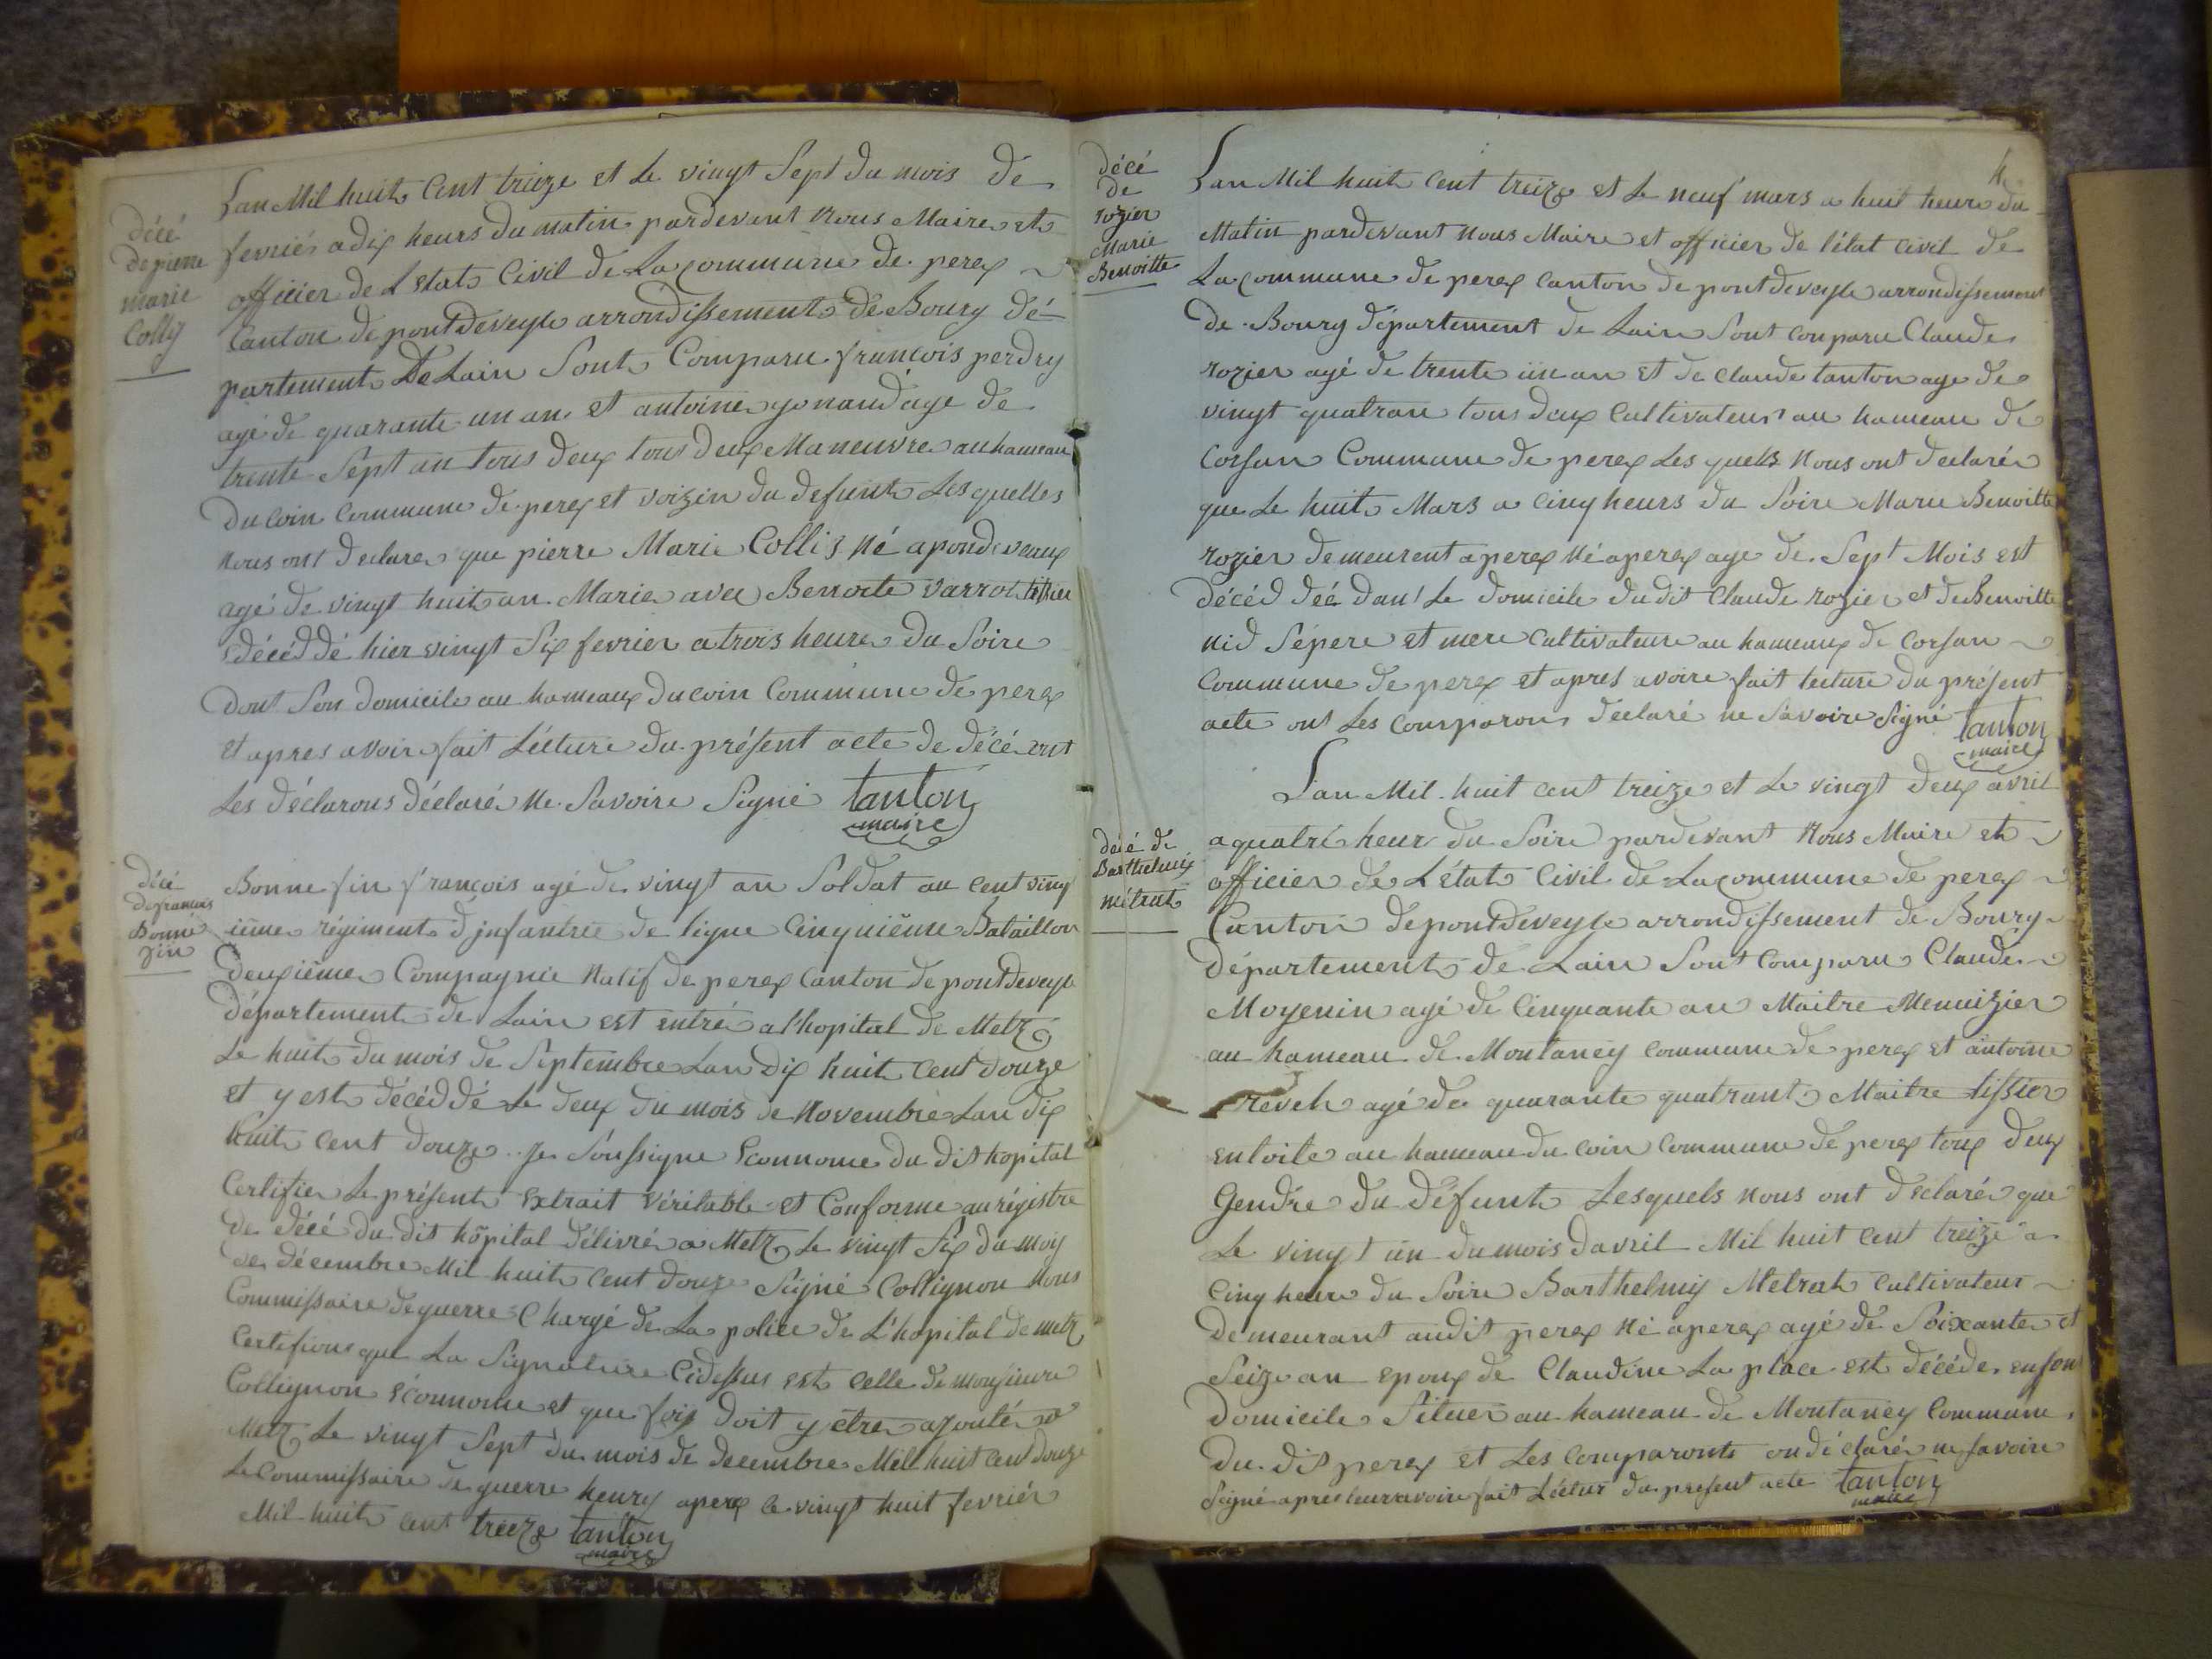 décé
de pierre
marie
Colly
Lan Mil huit Cent treize et Le vingt Sept du mois de
fevrier a dix heurs du matin pardevent Nous Maire et
officier de L'Etats Civil de La Commune de perex
Canton de pontdeveyle arrondissement de Bourg dé-
partement De Lain Sont Comparu françois perdry
agé de quarante un an et antoine gonaud age de
trente Sept an tous deux tous deux Maneuvre au hameau
du Coin Commune de perex et voizin du defunt Les quelles
nous ont declare que pierre Marie Collis Né a pondeveaux
agé de vingt huit an Marie avec Benoite varrot
décéddé hier vingt Six fevrier a trois heure du Soire
dont Son domicile au hameaux du coin Commune de perex
Et apres avoir fait Lécture du présent acte de décé ont
Les déclarons déclaré Ne Savoire Signé tanton
maire
décé
de françois
Bonne
fin
Bonne fin françois agé de vingt an Soldat au Cent ving
ieme régiment d'jnfantrie de ligne Cinquième Bataillon
deuxième Compagnie Natif de perex Canton de pontdeveyle
département de Lain est entré a l'hopital de Metz
Le huit du mois de Septembre Lan dix huit Cent douze
et y est décéddé Le deux du mois de Novembre Lan dix
huit Cent douze je Soussigne Econnome du dit hopital
Certifie Le présent Extrait Véritable et Conforme au régistre
de décé du dit hôpital délivré a Metz Le vingt Six du moy
de décembre Mil huit Cent douze Signé Collignon Nous
Commissaire de guerre Chargé de La police de L'hopital de metz
Certifions que La Signature Cidessus est Celle de monsieure
Collignon économe et que foix doit y être ajouté a
Metz Le vingt Sept du mois de decembre Mil huit Cent douze
Le Commissaire de guerre henry a perex le vingt huit fevriér
Mil huit Cent treize tanton
maire
4
décé
de
rozier
Marie
Benoitte
Lan Mil huit Cent treize et Le neuf mars a huit heure du
Matin pardevant Nous Maire et officier de l'état Civil de
La Commune de perex Canton de pontdeveyle arrondissement
de Bourg département de Lain Sont Comparu Claude
rozier agé de trente un an et de Claude tanton age de
vingt quatran tous deux Cultivateur au hameau de
Corsan Commune de perex Les quels Nous ont declaré
que Le huit Mars a Cinq heurs du Soire Marie Benoitte
rozier demeurent a perex Né a perex age de Sept Mois est
décéd déé dans Le domicile du dit Claude rozier et de Benoitte
nid Sépere et mere Cultivateure au hameaux de Corsan
Commune de perex et apres avoire fait lecture du présent
acte ont Les Comparons declaré ne Savoire Signé tanton
maire
décé de
Barthelmy
métrat
Lan Mil huit Cent treize et Le vingt deux avril
a quatré heur du Soire pardevant Nous Maire et
officier de L'état Civil de La Commune de perex
Canton de pontdeveyle arrondissement de Bourg
département de Lain Sont Comparu Claude
Moyenin agé de Cinquante an Maitre Menuizier
au hameau de Montaney Commune de perex et antoine
revel agé de quarante quatrant Maitre tissier
en toile au hameau du coin Commune de perex toux deux
Gendre du défunt Lesquels nous ont declaré que
Le vingt un du mois davril Mil huit Cent treize a
Cinq heure du Soire Barthelmy Metrat Cultivateur
demeurant audit perex Né a perex agé de Soixante et
Seize an epoux de Claudine La place est décéde en son
domicile Situer au hameau de Montaney Commune
du dit perex et Les Comparonts on déclaré ne Savoire
Signé apres leuravoire fait Lécture du présent acte tanton
maire